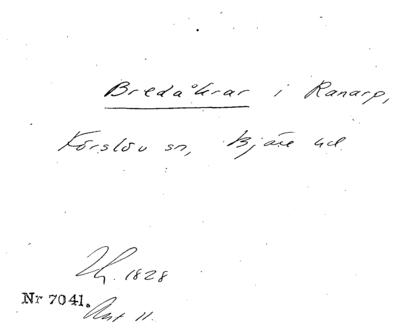 Bredåkrar i Ranarp,
Förslöv sn, Bjäre hd
1828
Nr 7041.